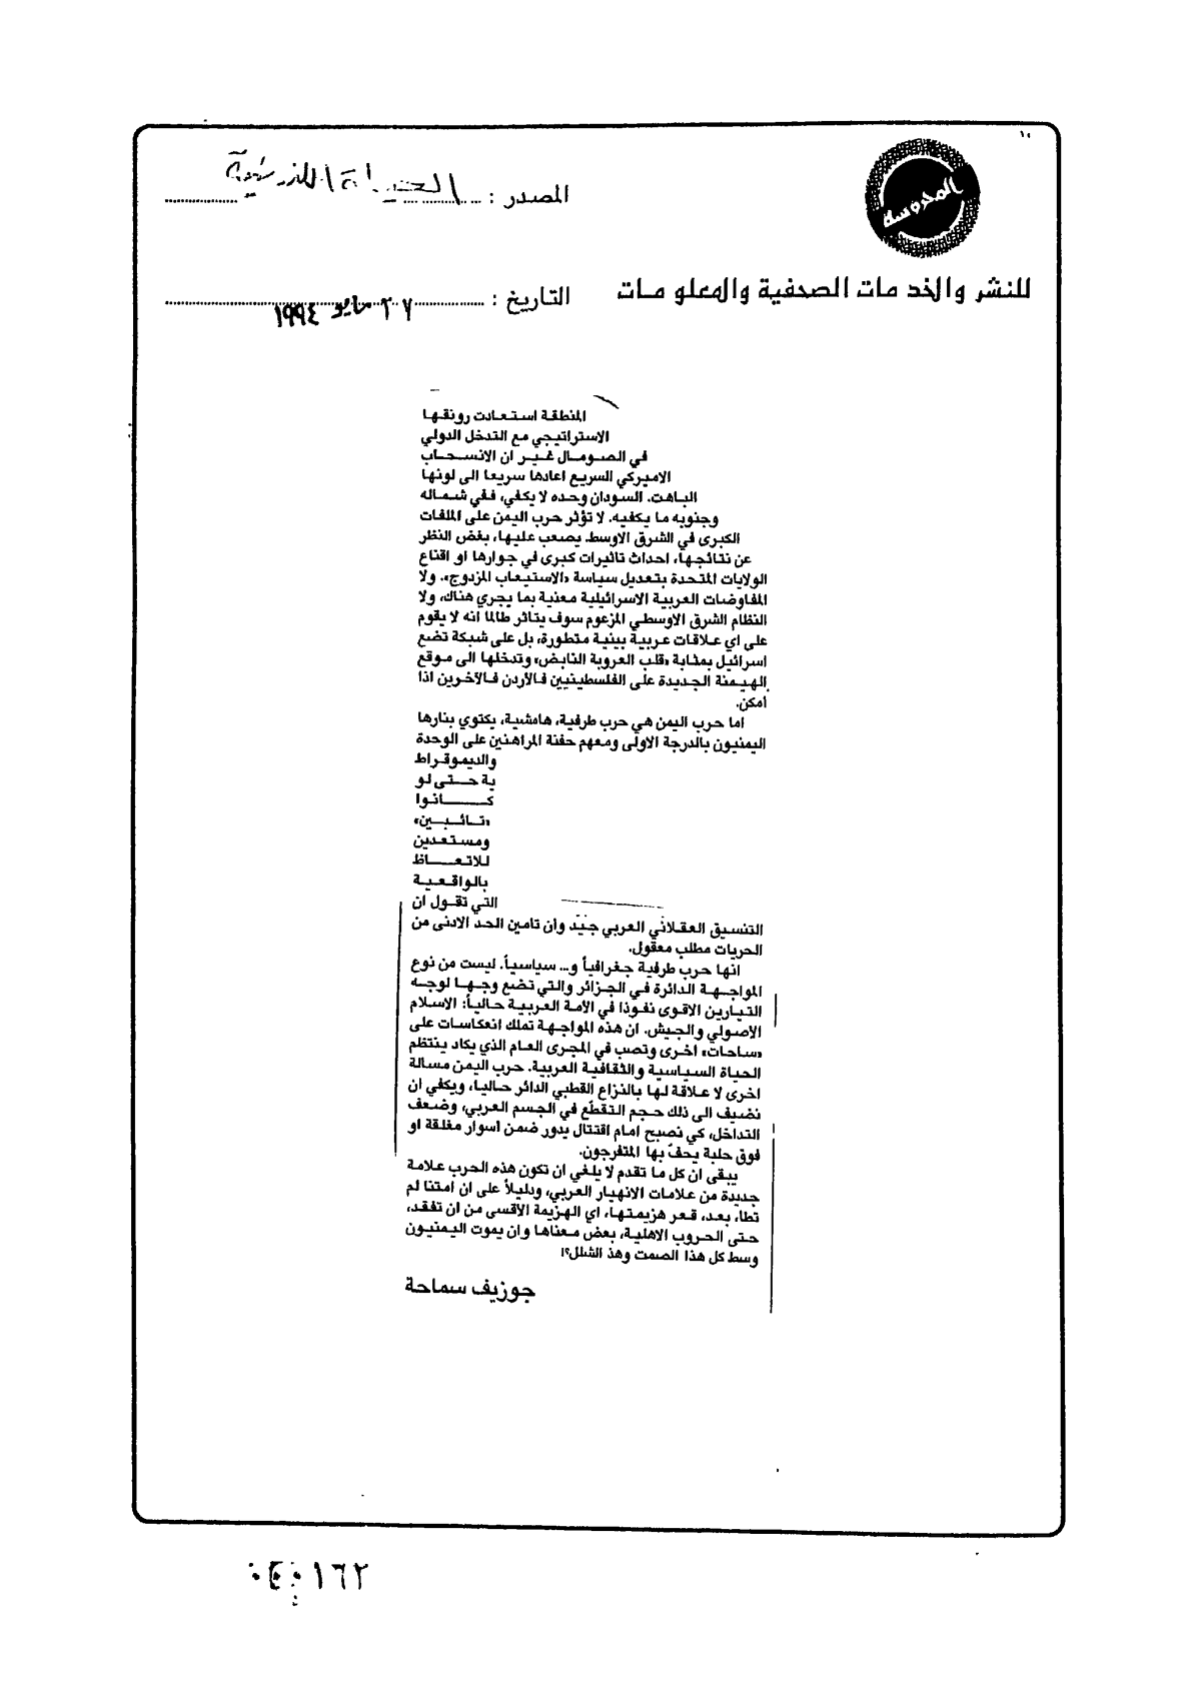 ١٠
المحروسة
المصدر : الحياة اللندنية
للنشر والخدمات الصحفية والمعلومات
التاريخ : ٢٧ مايو ١٩٩٤
المنطقة استعادت رونقها
الاستراتيجي مع التدخل الدولي
في الصومال غير ان الانسحاب
الاميركي السريع اعادها سريعا الى لونها
الباهت. السودان وحده لا يكفي، ففي شماله
وجنوبه ما يكفيه. لا تؤثر حرب اليمن على الملفات
الكبرى في الشرق الاوسط. يصعب عليها، بغض النظر
عن نتائجها، احداث تاثيرات كبرى في جوارها او اقناع
الولايات المتحدة بتعديل سياسة «الاستيعاب المزدوج». ولا
المفاوضات العربية الاسرائيلية معنية بما يجري هناك، ولا
النظام الشرق الاوسطي المزعوم سوف يتاثر طالما انه لا يقوم
على اي علاقات عربية بينية متطورة، بل على شبكة تضع
اسرائيل بمثابة «قلب العروبة النابض» وتدخلها الى موقع
الهيمنة الجديدة على الفلسطينيين فالأردن فالآخرين اذا
أمكن.
اما حرب اليمن هي حرب طرفية، هامشية، يكتوي بنارها
اليمنيون بالدرجة الاولى ومعهم حفنة المراهنين على الوحدة
والديموقراط
ية حتى لو
كانوا
«تائبين»
ومستعدين
للاتعاظ
بالواقعية
التي تقول ان
التنسيق العقلاني العربي جيّد وان تامين الحد الادنى من
الحريات مطلب معقول.
انها حرب طرفية جغرافياً و... سياسياً. ليست من نوع
المواجهة الدائرة في الجزائر والتي تضع وجها لوجه
التيارين الاقوى نفوذا في الأمة العربية حالياً: الاسلام
الاصولي والجيش. ان هذه المواجهة تملك انعكاسات على
«ساحات» اخرى وتصب في المجرى العام الذي يكاد ينتظم
الحياة السياسية والثقافية العربية. حرب اليمن مسالة
اخرى لا علاقة لها بالنزاع القطبي الدائر حاليا، ويكفي ان
نضيف الى ذلك حجم التقطّع في الجسم العربي، وضعف
التداخل، كي نصبح امام اقتتال يدور ضمن اسوار مغلقة او
فوق حلبة يحفّ بها المتفرجون.
يبقى ان كل ما تقدم لا يلغي ان تكون هذه الحرب علامة
جديدة من علامات الانهيار العربي، ودليلاً على ان امتنا لم
تطا، بعد، قعر هزيمتها، اي الهزيمة الاقسى من ان تفقد،
حتى الحروب الاهلية، بعض معناها وان يموت اليمنيون
وسط كل هذا الصمت وهذ الشلل؟!
جوزيف سماحة
٠٤٠١٦٢